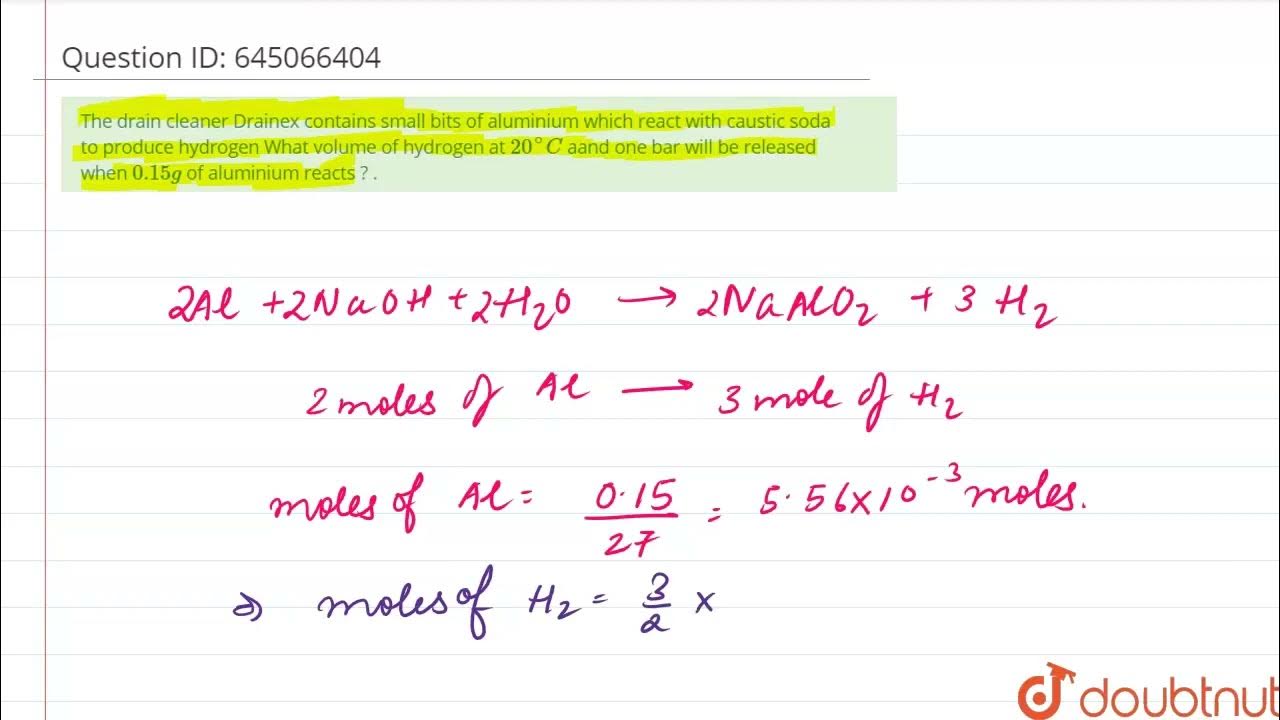 Question ID: 645066404
The drain cleaner Drainex contains small bits of aluminium which react with caustic soda
to produce hydrogen What volume of hydrogen at 20°C aand one bar will be released
when 0.15g of aluminium reacts ? .
2Al + 2NaOH + 2H₂O → 2NaAlO₂ + 3 H₂
2 moles of Al → 3 mole of H₂
moles of Al = 0.15/27 = 5.56×10⁻³ moles.
⇒ moles of H₂ = 3/2 ×
doubtnut